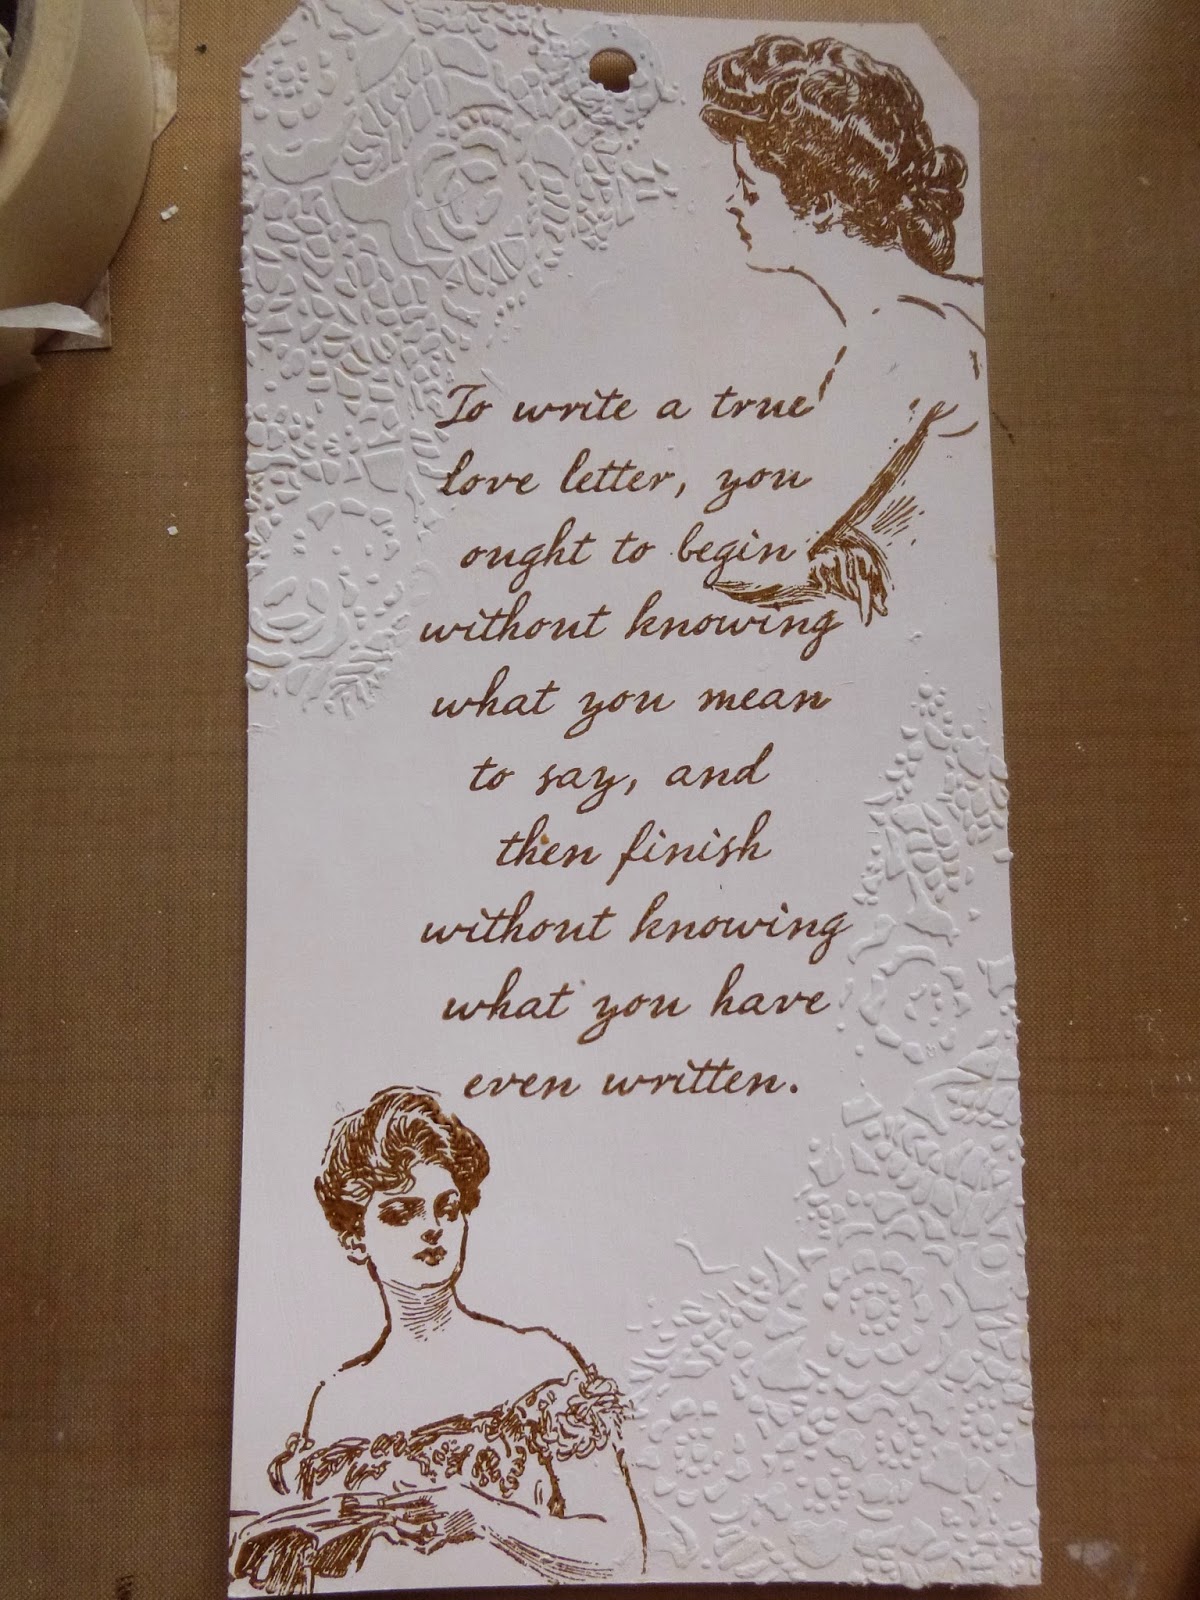 To write a true
love letter, you
ought to begin
without knowing
what you mean
to say, and
then finish
without knowing
what you have
even written.